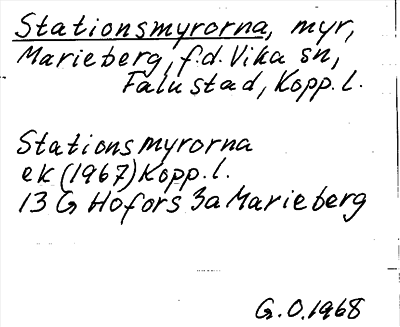 Stationsmyrorna, myr,
Marieberg, f.d. Vika sn,
Falu stad, Kopp. l.
Stationsmyrorna
ek (1967) Kopp. l.
13 G Hofors 3a Marieberg
G.O. 1968